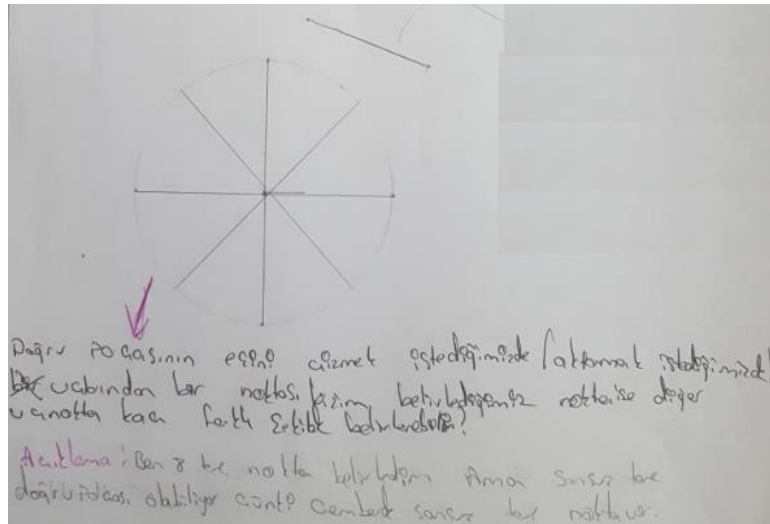 Doğru Parçasının eşini çizmek istediğimizde (aktarmak istediğimizde)
ucundan bir noktası bizim belirlediğimiz nokta ise diğer
uç nokta kaç farklı şekilde belirlenebilir?
Açıklama: Ben 8 tane nokta belirledim Ama sonsuz tane
doğru parçası olabiliyor çünkü çemberde sonsuz tane nokta var.